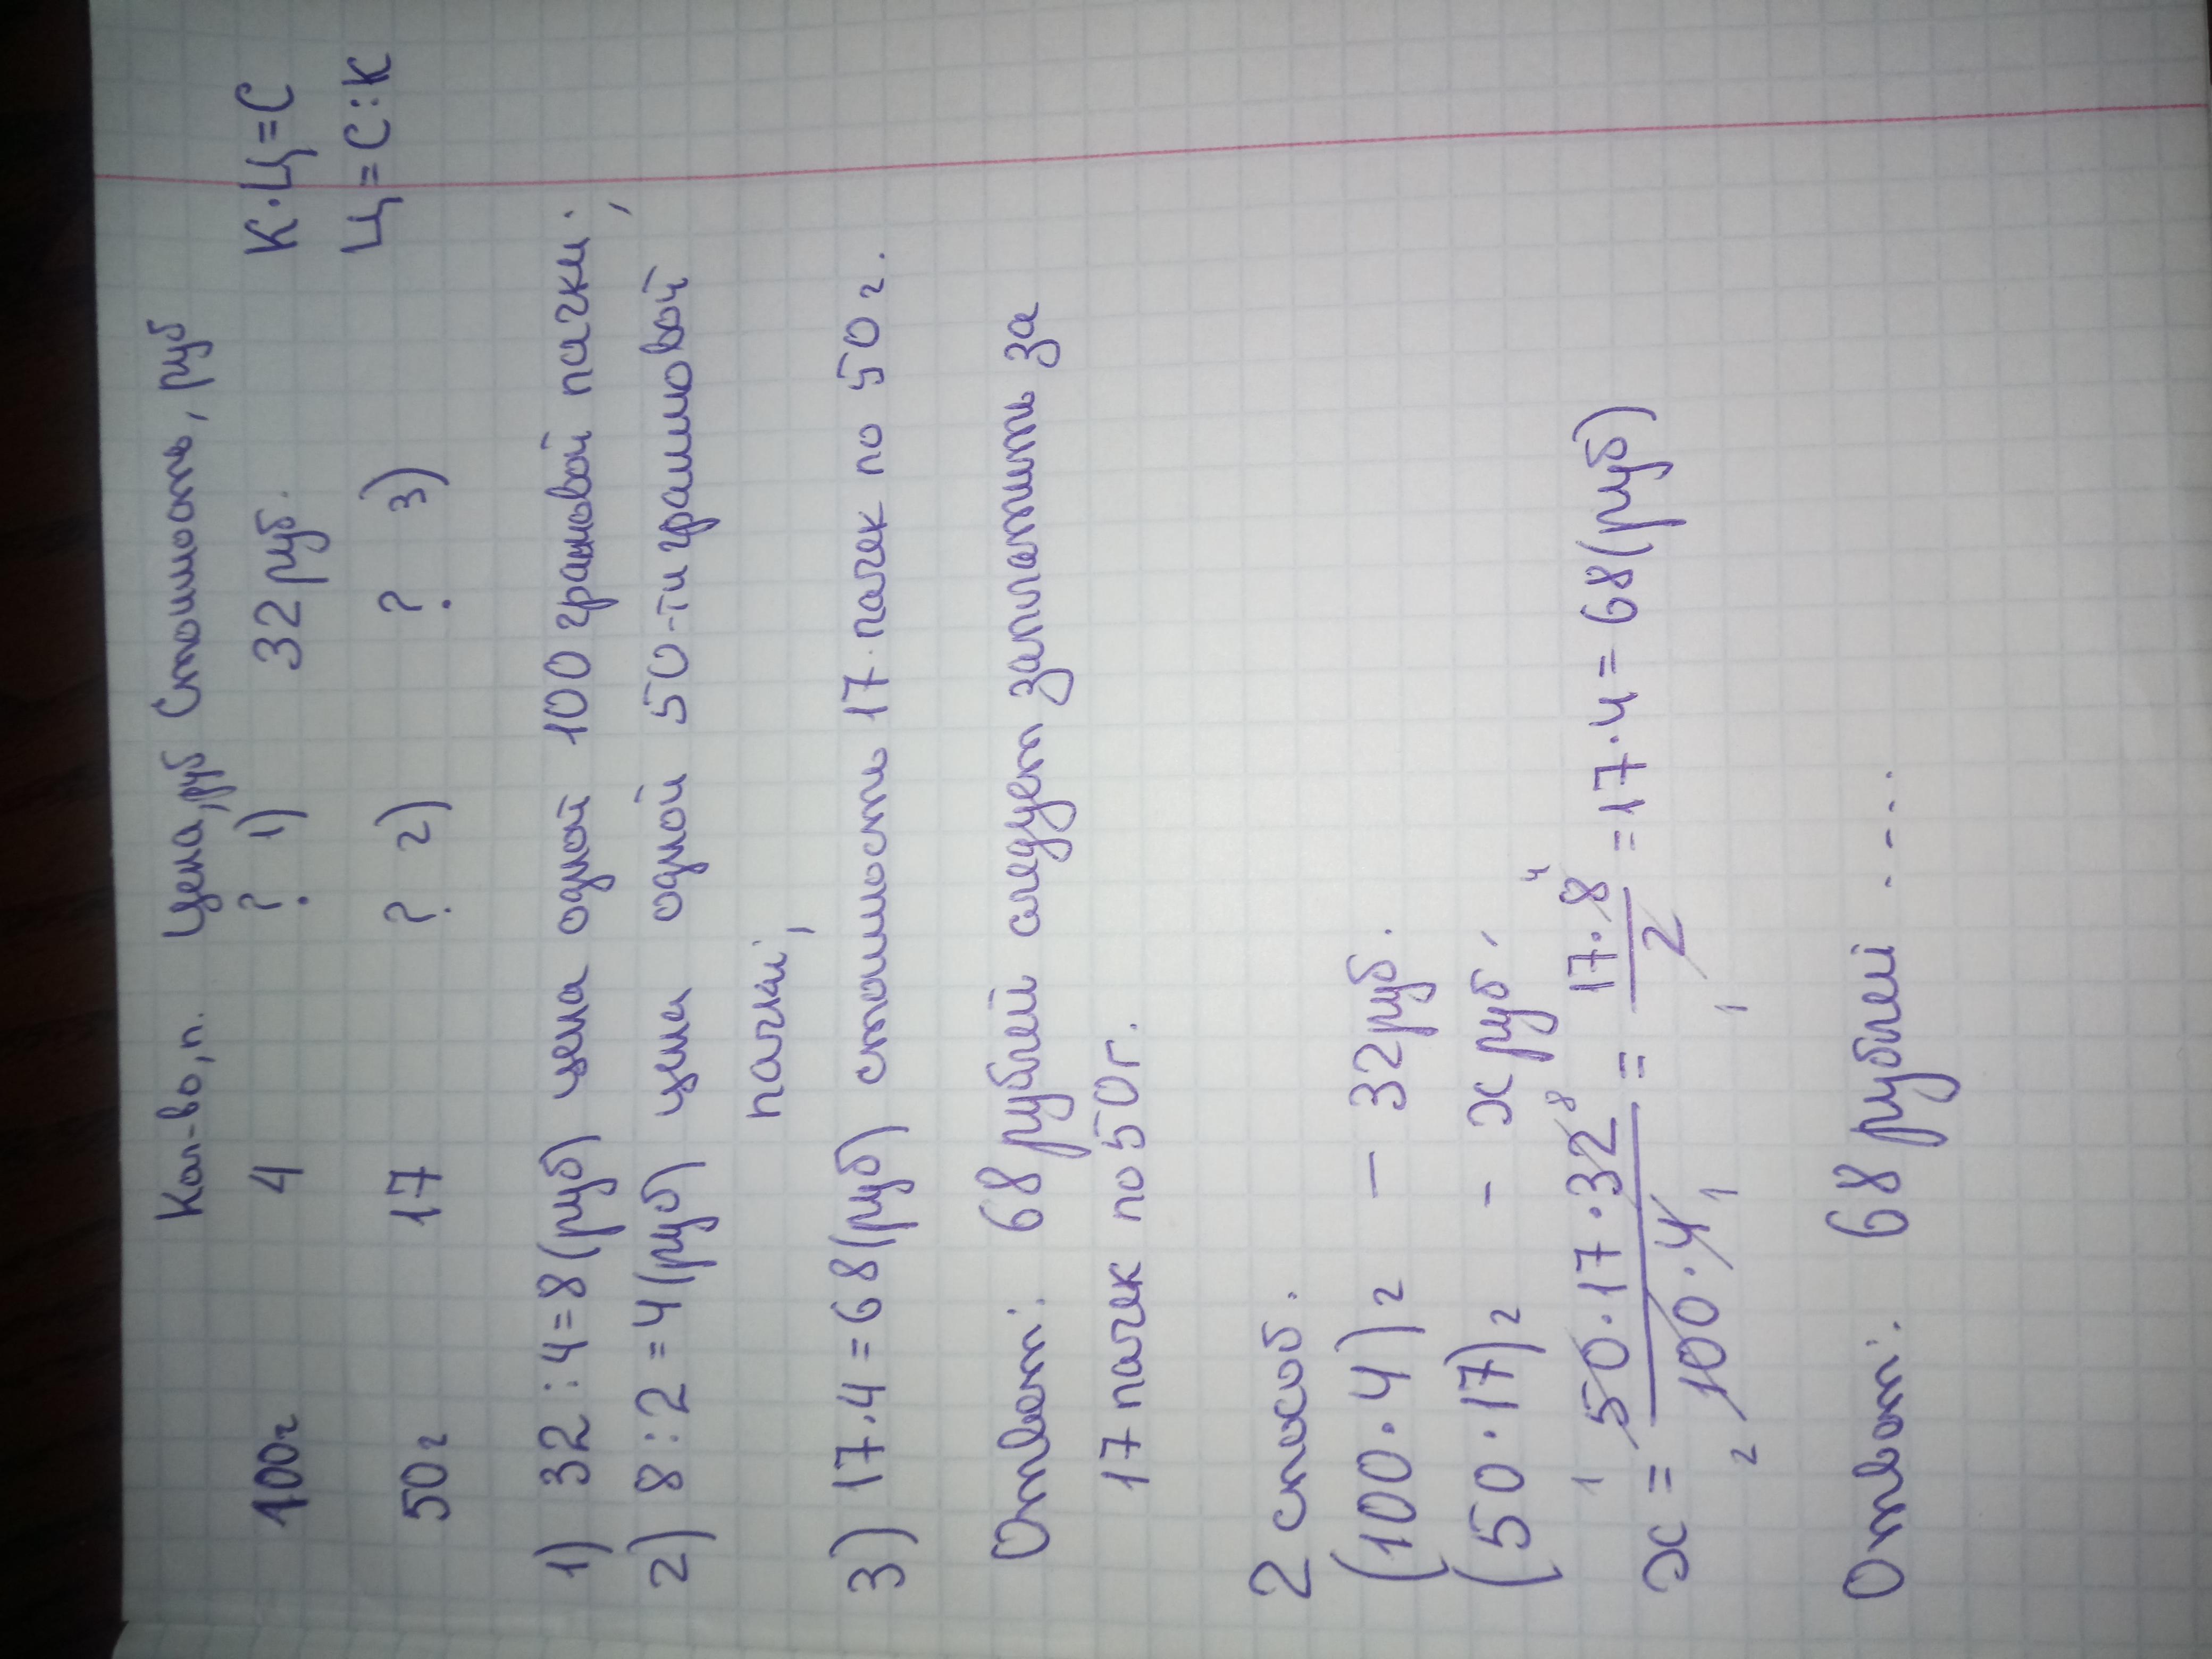 Кол-во, п. Цена, руб Стоимость, руб
100г 4 ? 1) 32 руб. К·Ц=С
50г 17 ? 2) ? 3) Ц=С:К
1) 32:4=8(руб) цена одной 100 граммовой пачки;
2) 8:2=4(руб) цена одной 50-ти граммовой
пачки;
3) 17·4=68(руб) стоимость 17 пачек по 50г.
Ответ: 68 рублей следует заплатить за
17 пачек по 50г.
2 способ.
(100·4)г — 32 руб.
(50·17)г - x руб.
x = 50·17·32 / 100·4 = 17·8 / 2 = 17·4 = 68(руб)
Ответ: 68 рублей ....